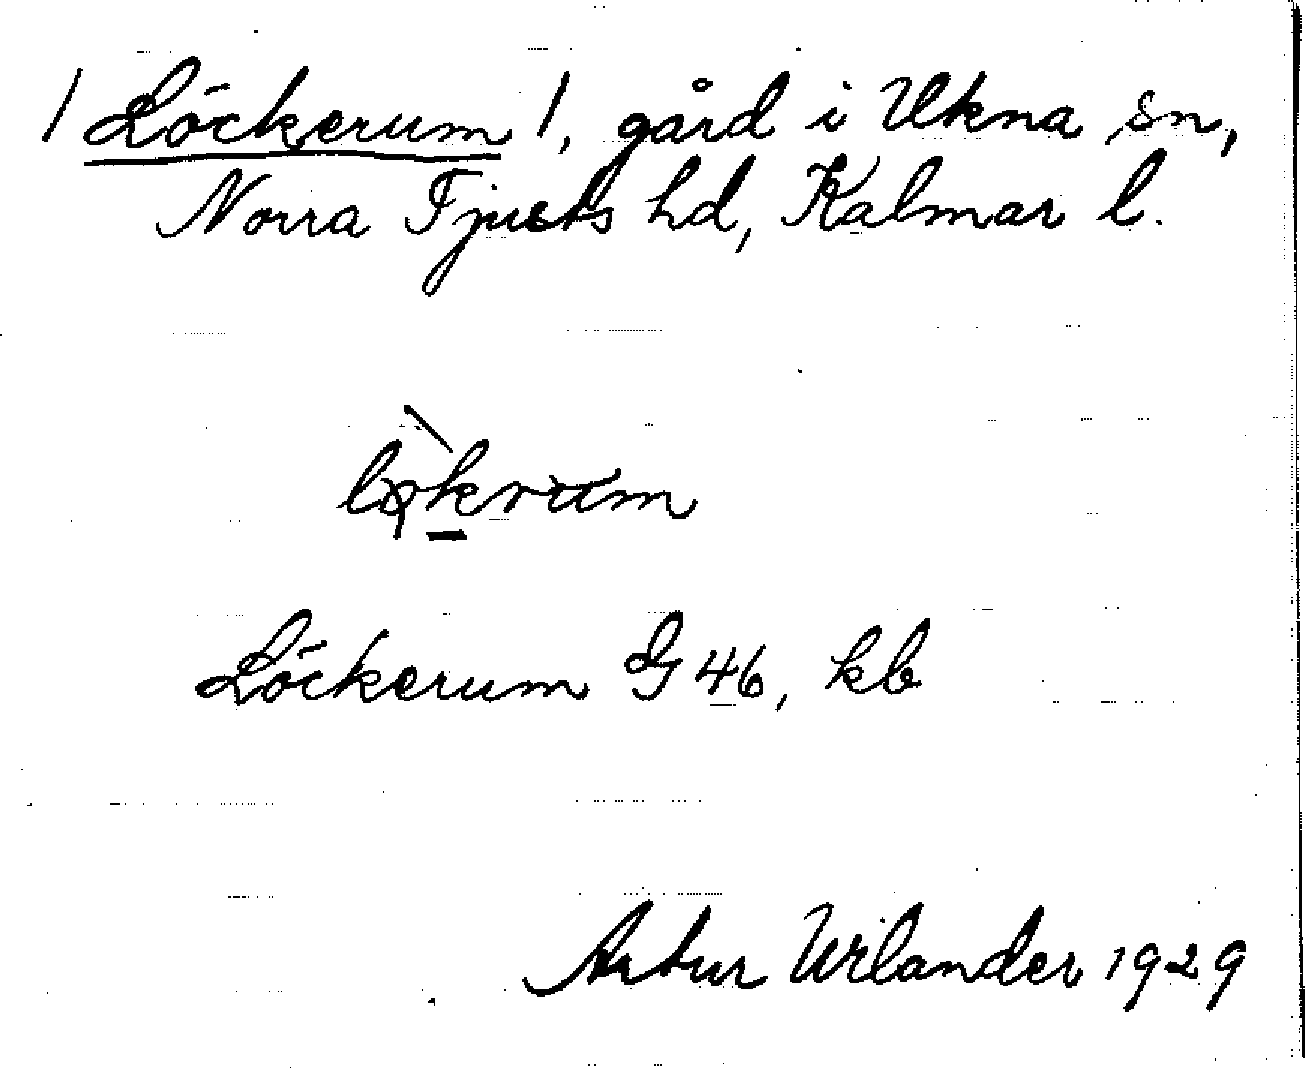 / Löckerum /, gård i Ukna sn,
Norra Tjusts hd, Kalmar l.
Löckerum G 46, kb
Artur Urlander 1929